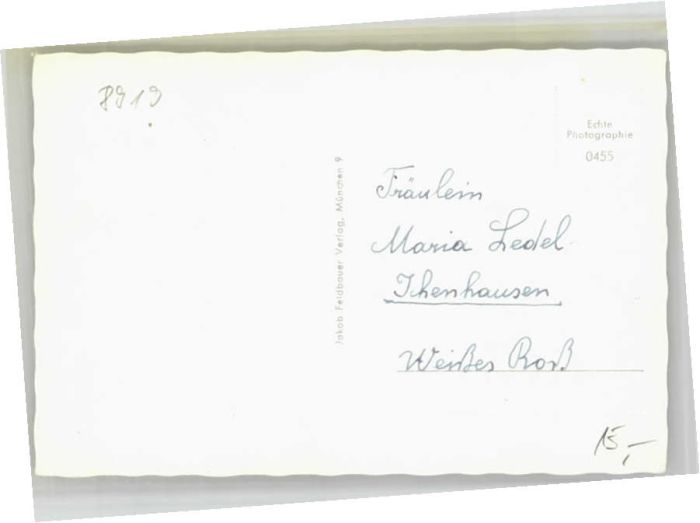 8919
Echte
Photographie
0455
Jakob Feldbauer Verlag, München 9
Fräulein
Maria Ledel
Ichenhausen
Weißes Roß
15,-